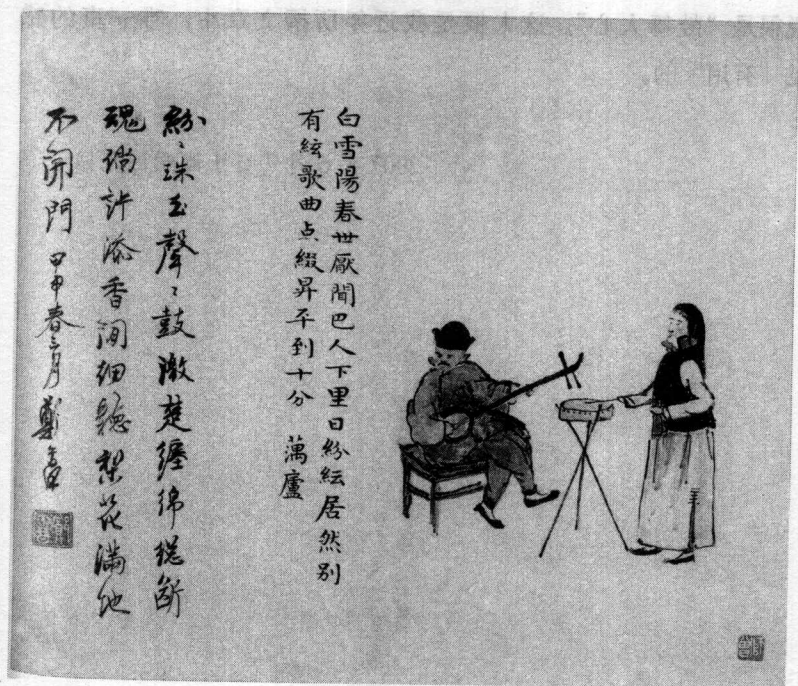 白雪陽春世厭聞巴人下里日紛紜居然別
有絃歌曲点綴昇平到十分
廬
紛〻珠玉聲〻鼓激楚纏綿總斷
魂許添香聽梨花滿地
不開門 甲申春三月